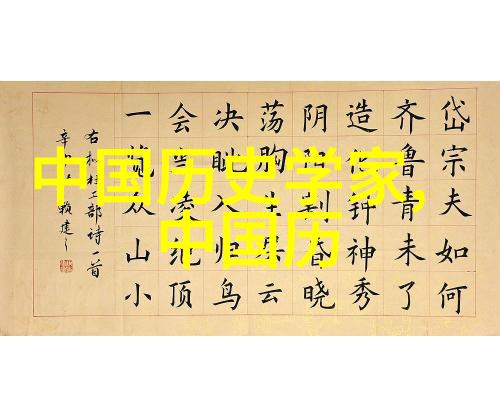 中国历史学家,
中国历
岱宗夫如何
齐鲁青未了
造化钟神秀
阴阳割昏晓
荡胸生层云
决眦入归鸟
会当凌绝顶
一览众山小
右杜工部诗一首
辛赖建